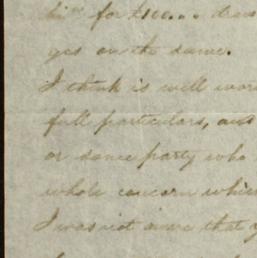 for £100... 
on the same.
I think is well wor
full particulars, and
or some party who
whole concern which
I was not aware that y